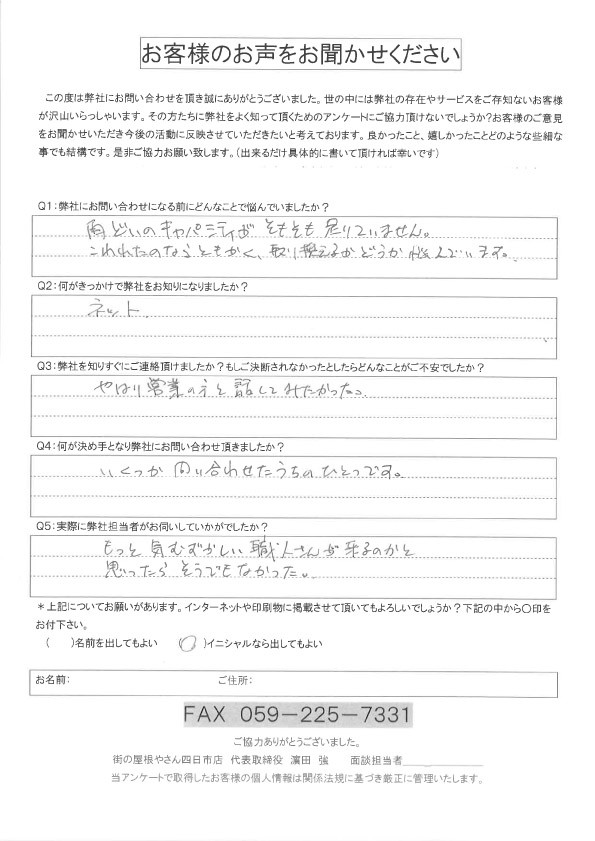 お客様のお声をお聞かせください
この度は弊社にお問い合わせを頂き誠にありがとうございました。世の中には弊社の存在やサービスをご存知ないお客様
が沢山いらっしゃいます。その方たちに弊社をよく知って頂くためのアンケートにご協力頂けないでしょうか?お客様のご意見
をお聞かせいただき今後の活動に反映させていただきたいと考えております。良かったこと、嬉しかったことどのような些細な
事でも結構です。是非ご協力お願い致します。(出来るだけ具体的に書いて頂ければ幸いです)
Q1:弊社にお問い合わせになる前にどんなことで悩んでいましたか?
雨どいのキャパシティが そもそも足りていません。
これれたのならともかく、取り換えるかどうか悩んでいます。
Q2:何がきっかけで弊社をお知りになりましたか?
ネット.
Q3:弊社を知りすぐにご連絡頂けましたか?もしご決断されなかったとしたらどんなことがご不安でしたか?
やはり営業の方と話してみたかった。
Q4:何が決め手となり弊社にお問い合わせ頂きましたか?
いくつか問い合わせたうちのひとつです。
Q5:実際に弊社担当者がお伺いしていかがでしたか?
もっと気むずかしい職人さんが来るのかと
思ったらそうでもなかった。
*上記についてお願いがあります。インターネットや印刷物に掲載させて頂いてもよろしいでしょうか?下記の中から〇印を
お付下さい。
( )名前を出してもよい (〇)イニシャルなら出してもよい
お名前: ご住所:
FAX 059-225-7331
ご協力ありがとうございました。
街の屋根やさん四日市店 代表取締役 濵田 強 面談担当者
当アンケートで取得したお客様の個人情報は関係法規に基づき厳正に管理いたします。